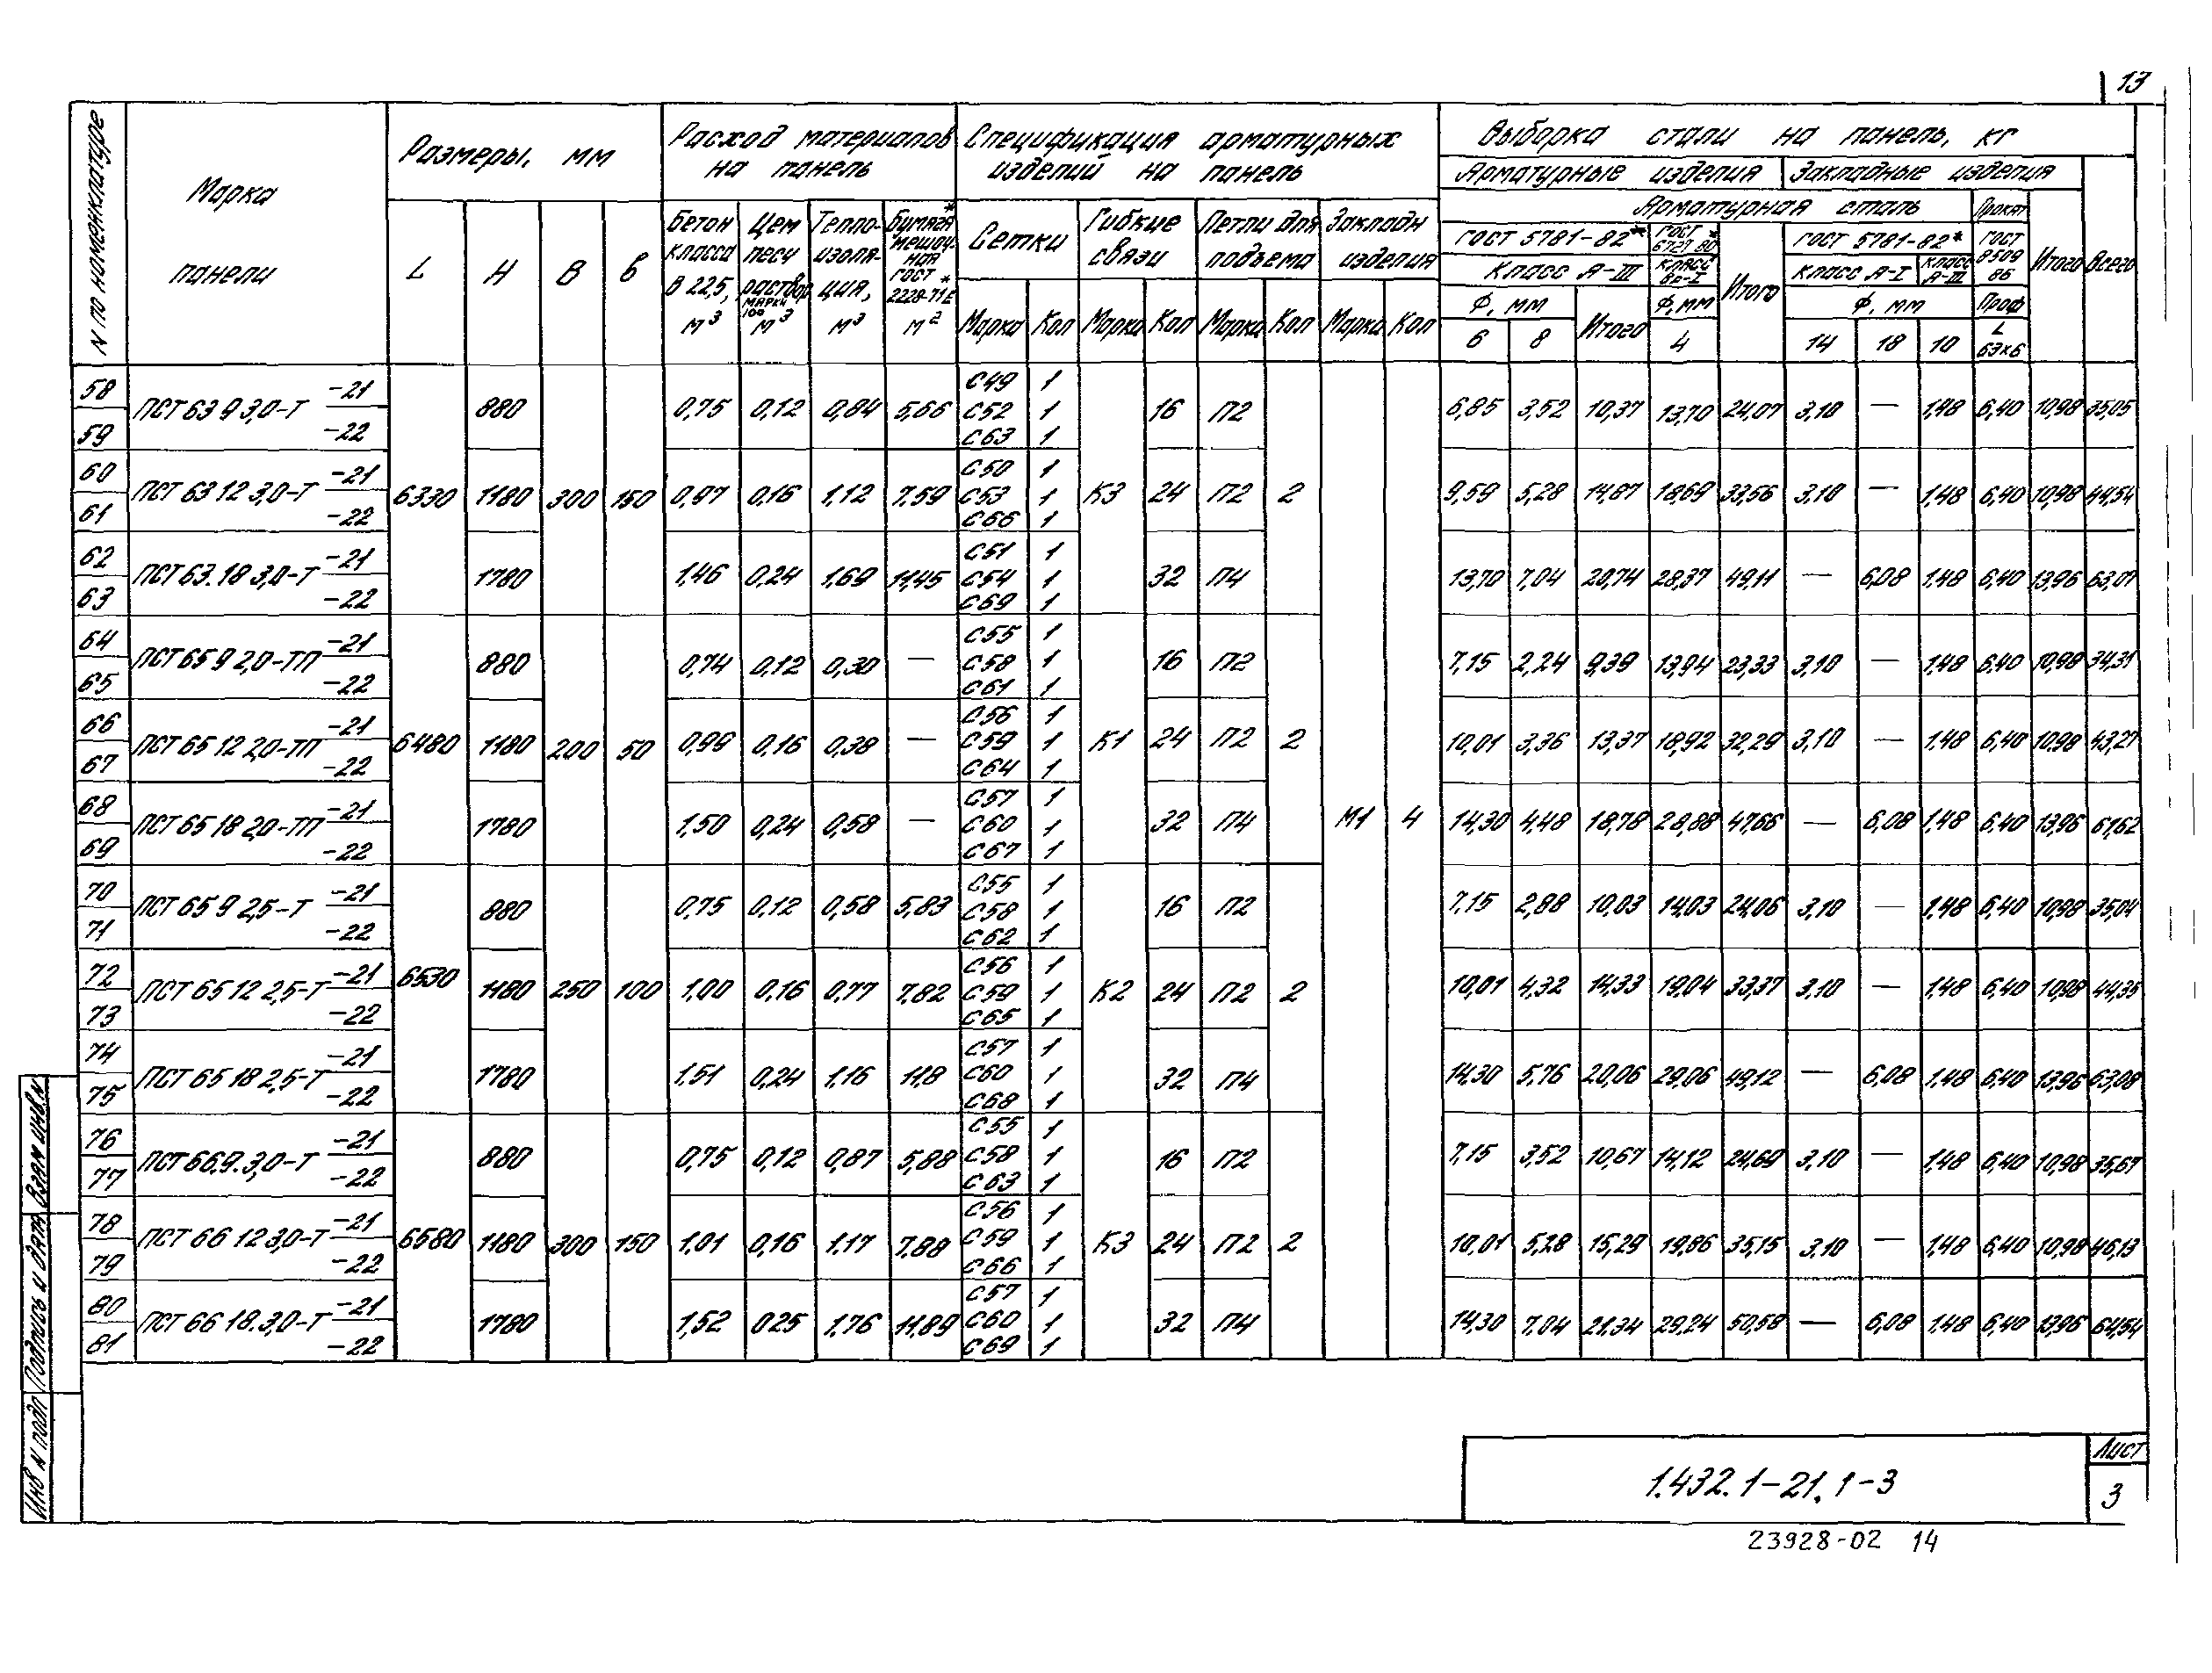 13
N по номенклатуре
Марка панели
Размеры, мм
Расход материалов на панель
Спецификация арматурных изделий на панель
Выборка стали на панель, кг
Арматурные изделия
Закладные изделия
Всего
L
H
B
в
Бетон класса В 22,5, м³
Цем песч раствор марки 100 м³
Теплоизоляция, м³
Бумага* мешочная ГОСТ* 2228-71Е м²
Сетки
Гибкие связи
Петли для подъема
Закладн изделия
Арматурная сталь
Прокат
ГОСТ 5781-82*
ГОСТ* 6727 80
Итого
ГОСТ 5781-82*
ГОСТ 8509 86
Итого
Класс А-III
Класс Вр-I
Класс А-I
Класс А-III
Марка Кол Марка Кол Марка Кол Марка Кол
Ф, мм
Итого
Ф, мм
Ф, мм
Проф
6 8 4 14 18 10 L 63×6
58 ПСТ 63 9 3,0-Т -21 880 0,75 0,12 0,84 5,66 С49 1 16 П2 6,85 3,52 10,37 13,70 24,07 3,10 — 1,48 6,40 10,98 35,05
С52 1
59 -22 С63 1
60 ПСТ 63 12 3,0-Т -21 6330 1180 300 150 0,97 0,16 1,12 7,59 С50 1 К3 24 П2 2 9,59 5,28 14,87 18,69 33,56 3,10 — 1,48 6,40 10,98 44,54
С53 1
61 -22 С66 1
62 ПСТ 63.18 3,0-Т -21 1780 1,46 0,24 1,69 11,45 С51 1 32 П4 13,70 7,04 20,74 28,37 49,11 — 6,08 1,48 6,40 13,96 63,07
С54 1
63 -22 С69 1
64 ПСТ 65 9 2,0-ТП -21 880 0,74 0,12 0,30 — С55 1 16 П2 7,15 2,24 9,39 13,94 23,33 3,10 — 1,48 6,40 10,98 34,31
С58 1
65 -22 С61 1
66 ПСТ 65 12 2,0-ТП -21 6480 1180 200 50 0,99 0,16 0,38 — С56 1 К1 24 П2 2 10,01 3,36 13,37 18,92 32,29 3,10 — 1,48 6,40 10,98 43,27
С59 1
67 -22 С64 1
68 ПСТ 65 18 2,0-ТП -21 1780 1,50 0,24 0,58 — С57 1 32 П4 М1 4 14,30 4,48 18,78 28,88 47,66 — 6,08 1,48 6,40 13,96 61,62
С60 1
69 -22 С67 1
70 ПСТ 65 9 2,5-Т -21 880 0,75 0,12 0,58 5,83 С55 1 16 П2 7,15 2,88 10,03 14,03 24,06 3,10 — 1,48 6,40 10,98 35,04
С58 1
71 -22 С62 1
72 ПСТ 65 12 2,5-Т -21 6530 1180 250 100 1,00 0,16 0,77 7,82 С56 1 К2 24 П2 2 10,01 4,32 14,33 19,04 33,37 3,10 — 1,48 6,40 10,98 44,35
С59 1
73 -22 С65 1
74 ПСТ 65 18 2,5-Т -21 1780 1,51 0,24 1,16 11,8 С57 1 32 П4 14,30 5,76 20,06 29,06 49,12 — 6,08 1,48 6,40 13,96 63,08
С60 1
75 -22 С68 1
76 ПСТ 66.9.3,0-Т -21 880 0,75 0,12 0,87 5,88 С55 1 16 П2 7,15 3,52 10,67 14,12 24,69 3,10 — 1,48 6,40 10,98 35,67
С58 1
77 -22 С63 1
78 ПСТ 66 12 3,0-Т -21 6580 1180 300 150 1,01 0,16 1,17 7,88 С56 1 К3 24 П2 2 10,01 5,28 15,29 19,86 35,15 3,10 — 1,48 6,40 10,98 46,13
С59 1
79 -22 С66 1
80 ПСТ 66 18.3,0-Т -21 1780 1,52 025 1,76 11,89 С57 1 32 П4 14,30 7,04 21,34 29,24 50,58 — 6,08 1,48 6,40 13,96 64,54
С60 1
81 -22 С69 1
Инв N подл Подпись и дата Взам инв.N
1.432.1-21.1-3
Лист
3
23928-02 14